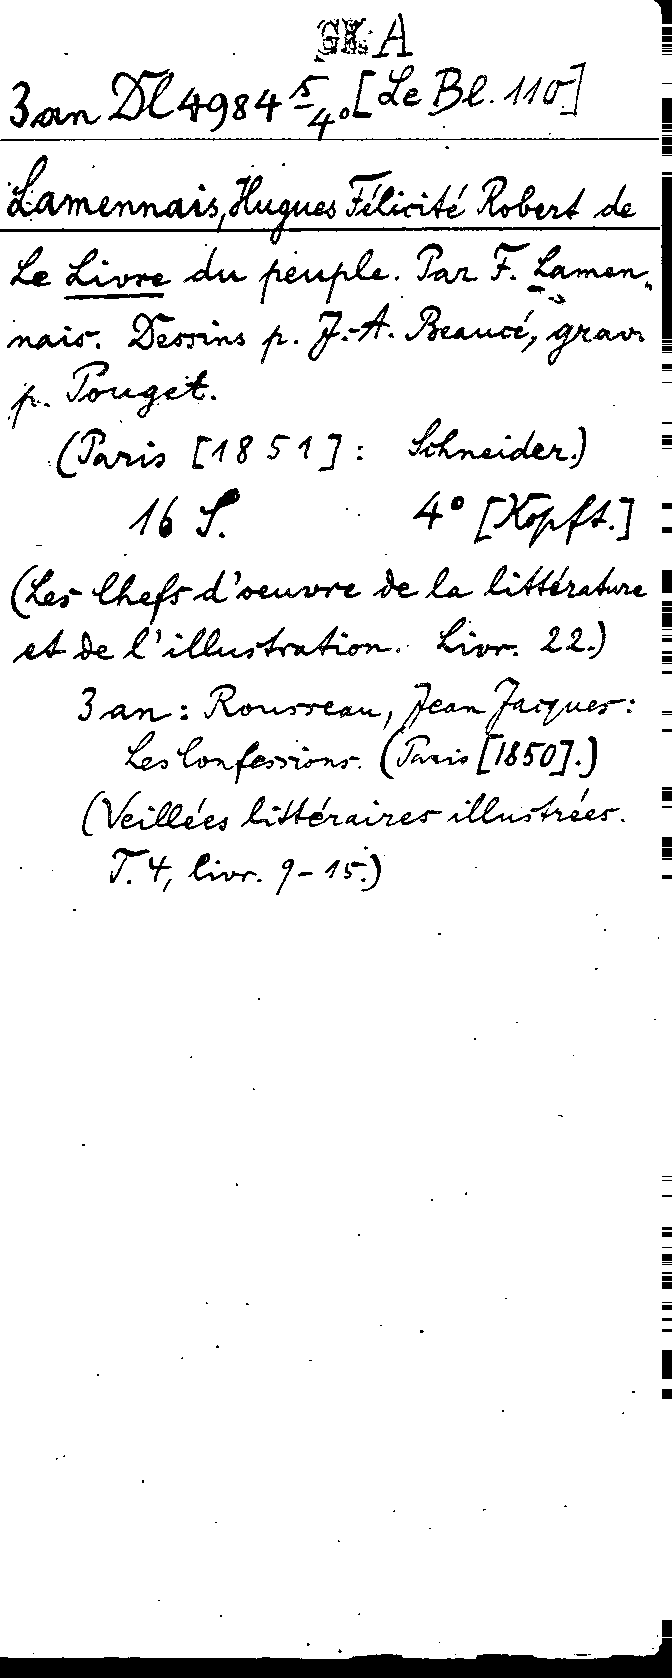 GK A
3 an Dl 4984 5/4° [Le Bl. 110]
Lamennais, Hugues Félicité Robert de
Le Livre du peuple. Par F. Lamen-
nais. Dessins p. J.-A. Beaucé, grav.
p. Pouget.
(Paris [1851]: Schneider.)
16 S. 4° [Kopft.]
(Les Chefs d'oeuvre de la littérature
et de l'illustration. Livr. 22.)
3 an: Rousseau, Jean Jacques:
Les Confessions. (Paris [1850].)
(Veillées littéraires illustrées.
T. 4, livr. 9-15.)